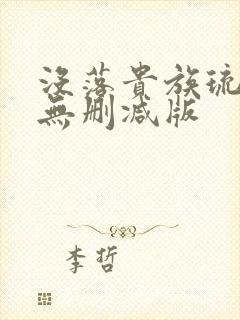 没落貴族琉
無删减版
李哲